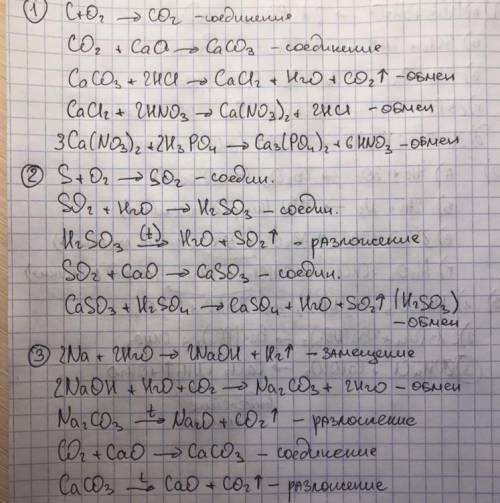 ① C+O₂ → CO₂ - соединение
CO₂ + CaO → CaCO₃ - соединение
CaCO₃ + 2HCl → CaCl₂ + H₂O + CO₂↑ - обмен
CaCl₂ + 2HNO₃ → Ca(NO₃)₂ + 2HCl - обмен
3Ca(NO₃)₂ + 2H₃PO₄ → Ca₃(PO₄)₂ + 6HNO₃ - обмен
② S + O₂ → SO₂ - соедин.
SO₂ + H₂O → H₂SO₃ - соедин.
H₂SO₃ (t)→ H₂O + SO₂↑ - разложение
SO₂ + CaO → CaSO₃ - соедин.
CaSO₃ + H₂SO₄ → CaSO₄ + H₂O + SO₂↑ (H₂SO₃)
- обмен
③ 2Na + 2H₂O → 2NaOH + H₂↑ - замещение
2NaOH + H₂O + CO₂ → Na₂CO₃ + 2H₂O - обмен
Na₂CO₃ t→ Na₂O + CO₂↑ - разложение
CO₂ + CaO → CaCO₃ - соединение
CaCO₃ t→ CaO + CO₂↑ - разложение